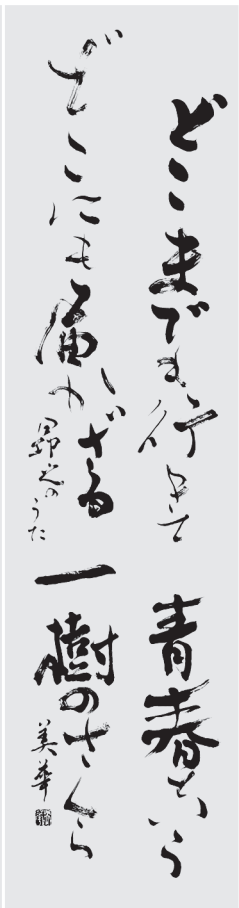 どこまでも行きて 青春という
どこにも届かざる 一樹のさくら
のうた
美華